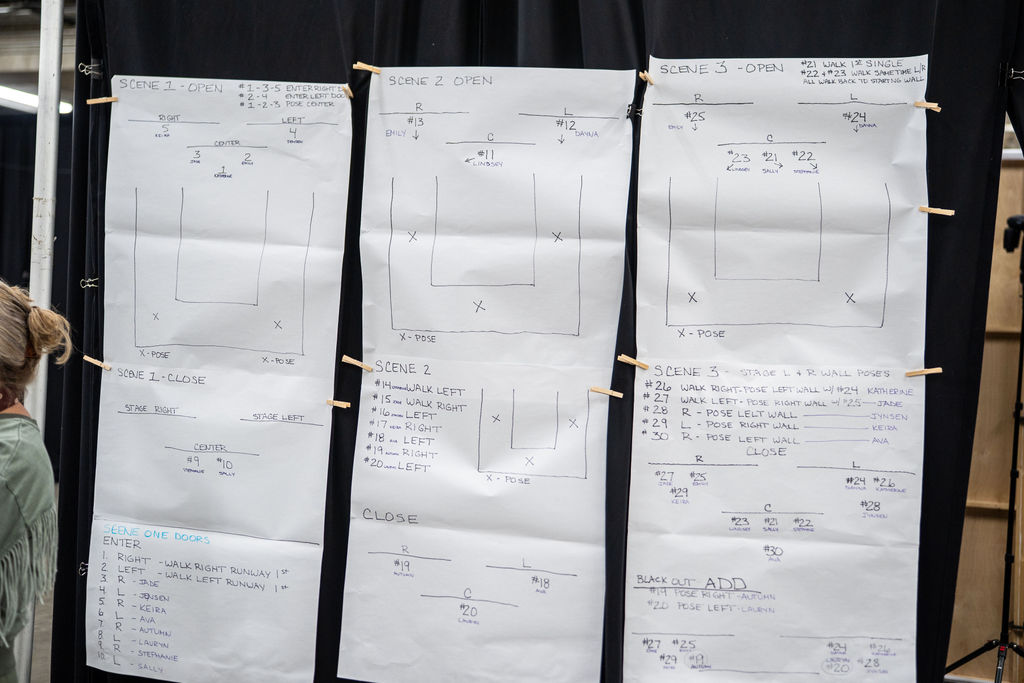 SCENE 1 - OPEN
#1-3-5 ENTER RIGHT D
#2-4 ENTER LEFT DOO
#1-2-3 POSE CENTER
RIGHT
LEFT
5
4
KEIRA
JENSEN
CENTER
3
2
JADE
EMILY
1
KATHERINE
X-POSE
X-POSE
SCENE 1 - CLOSE
STAGE RIGHT
STAGE LEFT
CENTER
#9 #10
STEPHANIE SALLY
SCENE ONE DOORS
ENTER
1. RIGHT - WALK RIGHT RUNWAY 1st
2. LEFT - WALK LEFT RUNWAY 1st
3. R - JADE
4 L - JENSEN
5 R - KEIRA
6 L - AVA
7 R - AUTUMN
8 L - LAURYN
9. R - STEPHANIE
10. L - SALLY
SCENE 2 OPEN
R
L
#13
#12
EMILY
DAYNA
C
#11
LINDSEY
X
X
X
X - POSE
SCENE 2
#14 WALK LEFT
#15 WALK RIGHT
#16 LEFT
#17 KEIRA RIGHT
#18 AVA LEFT
#19 RIGHT
#20 LEFT
X
X
X
X - POSE
CLOSE
R
L
#19
AUTUMN
#18
AVA
C
#20
LAURYN
SCENE 3 - OPEN
#21 WALK 1st SINGLE
#22 + #23 WALK SAMETIME L/R
ALL WALK BACK TO STARTING WALL
R
L
#25
#24
EMILY
DAYNA
C
#23 #21 #22
LINDSEY SALLY STEPHANIE
X
X
X - POSE
SCENE 3 - STAGE L & R WALL POSES
#26 WALK RIGHT-POSE LEFT WALL W/ #24 KATHERINE
#27 WALK LEFT- POSE RIGHT WALL W/ #25 JADE
#28 R - POSE LELT WALL JYNSEN
#29 L - POSE RIGHT WALL KEIRA
#30 R - POSE LEFT WALL AVA
CLOSE
R
L
#27 #25
JADE EMILY
#24 #26
DAYNA KATHERINE
#29
KEIRA
#28
JYNSEN
C
#23 #21 #22
LINDSEY SALLY STEPHANIE
#30
AVA
BLACK OUT ADD
#19 POSE RIGHT - AUTUMN
#20 POSE LEFT - LAURYN
#27 #25
#24 #26
#29 #19
AUTUMN
LAURYN
#20 #28